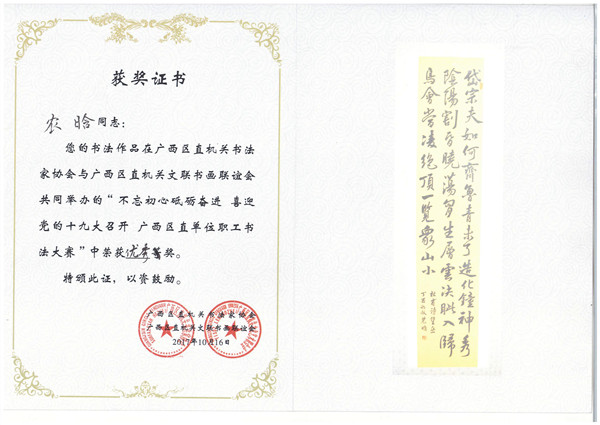 获奖证书
农晗同志：
您的书法作品在广西区直机关书法
家协会与广西区直机关文联书画联谊会
共同举办的“不忘初心砥砺奋进 喜迎
党的十九大召开 广西区直单位职工书
法大赛”中荣获优秀等奖。
特颁此证，以资鼓励。
广西区直机关书法家协会
广西区直机关文联书画联谊会
2017年10月16日
岱宗夫如何齊魯青未了造化鐘神秀
陰陽割昏曉蕩胸生層雲決眦入歸
鳥會當凌絕頂一覽眾山小